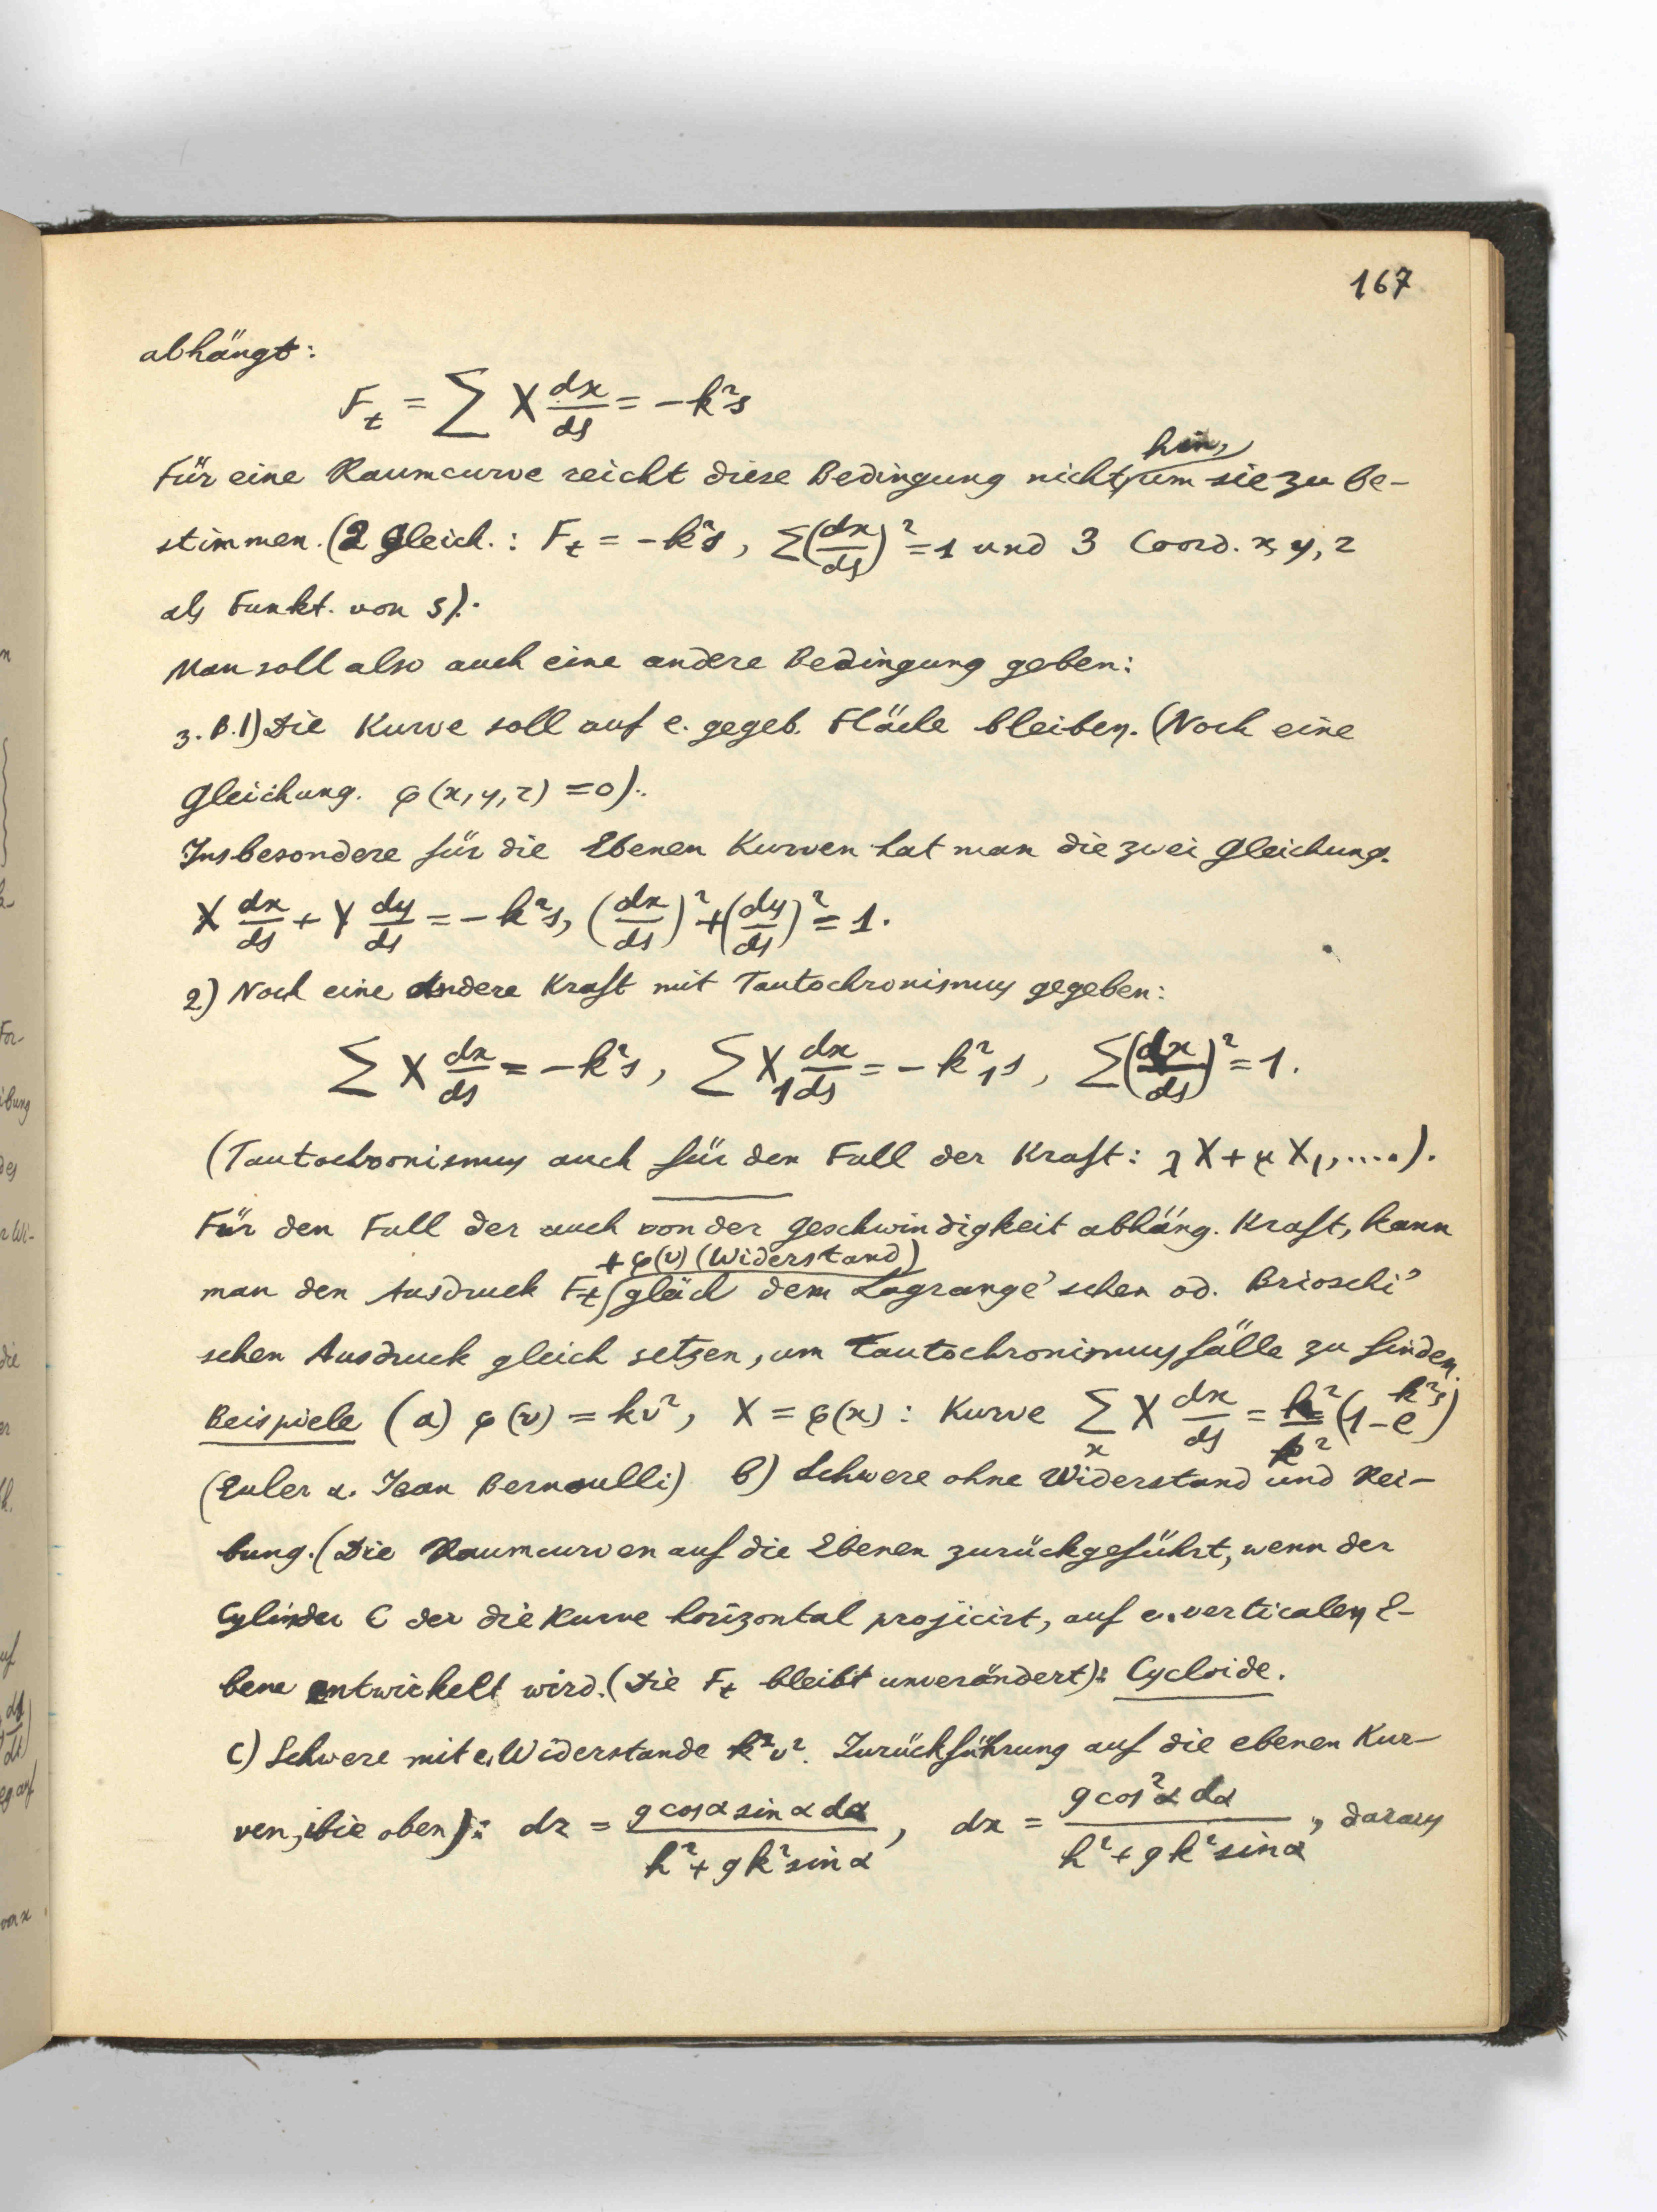 167
abhängt:
F_t = ∑ X dx/ds = -k²s
Für eine Raumcurve reicht diese Bedingung nicht hin, um sie zu be-
stimmen. (2 Gleich.: F_t = -k²s, ∑(dx/ds)² = 1 und 3 Coord. x, y, z
als Funkt. von s).
Man soll also auch eine andere Bedingung geben:
z. B. 1) Die Kurve soll auf e. gegeb. Fläche bleiben. (Noch eine
Gleichung. φ(x, y, z) = 0).
Insbesondere für die Ebenen Kurven hat man die zwei Gleichung.
X dx/ds + Y dy/ds = -k²s, (dx/ds)² + (dy/ds)² = 1.
2) Noch eine andere Kraft mit Tautochronismus gegeben:
∑ X dx/ds = -k²s, ∑ X₁ dx/ds = -k²₁s, ∑(dx/ds)² = 1.
(Tautochronismus auch für den Fall der Kraft: λX + μX₁, ....).
Für den Fall der auch von der Geschwindigkeit abhäng. Kraft, kann
+ φ(v) (Widerstand)
man den Ausdruck F_t gläch dem Lagrange'schen od. Brioschi'
schen Ausdruck gleich setzen, um Tautochronismusfälle zu finden.
Beispiele (a) φ(v) = kv², X = φ(x): Kurve ∑_x X dx/ds = h²/k² (1 - e^{k²s})
(Euler u. Jean Bernoulli) b) Schwere ohne Widerstand und Rei-
bung. (Die Raumcurven auf die Ebenen zurückgeführt, wenn der
Cylinder C der die Kurve horizontal projicirt, auf e. verticalen E-
bene entwickelt wird. (Die F_t bleibt unverändert): Cycloide.
c) Schwere mit e. Widerstande k²v². Zurückführung auf die ebenen Kur-
ven, wie oben): dz = g cosα sinα dα / h² + gk² sinα, dx = g cos²α dα / h² + gk² sinα, daraus